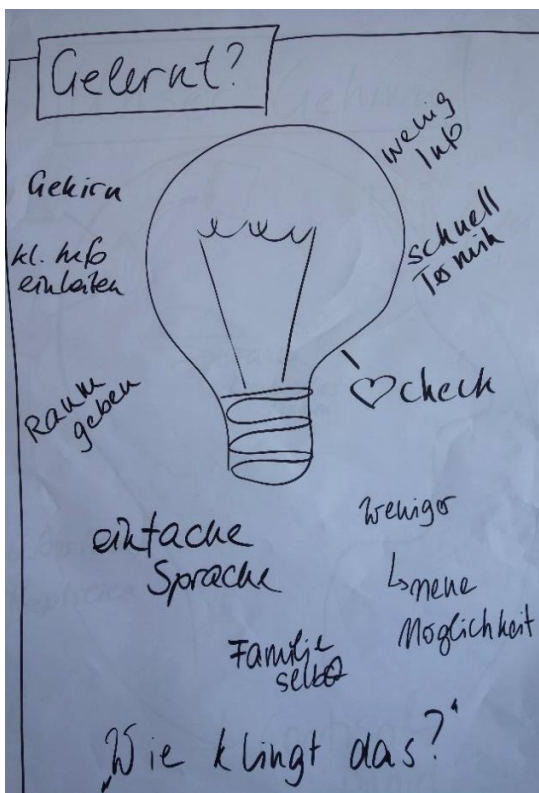 Gelernt?
Gehirn
kl. Info
einleiten
Raum
geben
wenig
Info
schnell
Termin
♡check
einfache
Sprache
weniger
↳neue
Möglichkeit
Familie
selbst
„Wie klingt das?“